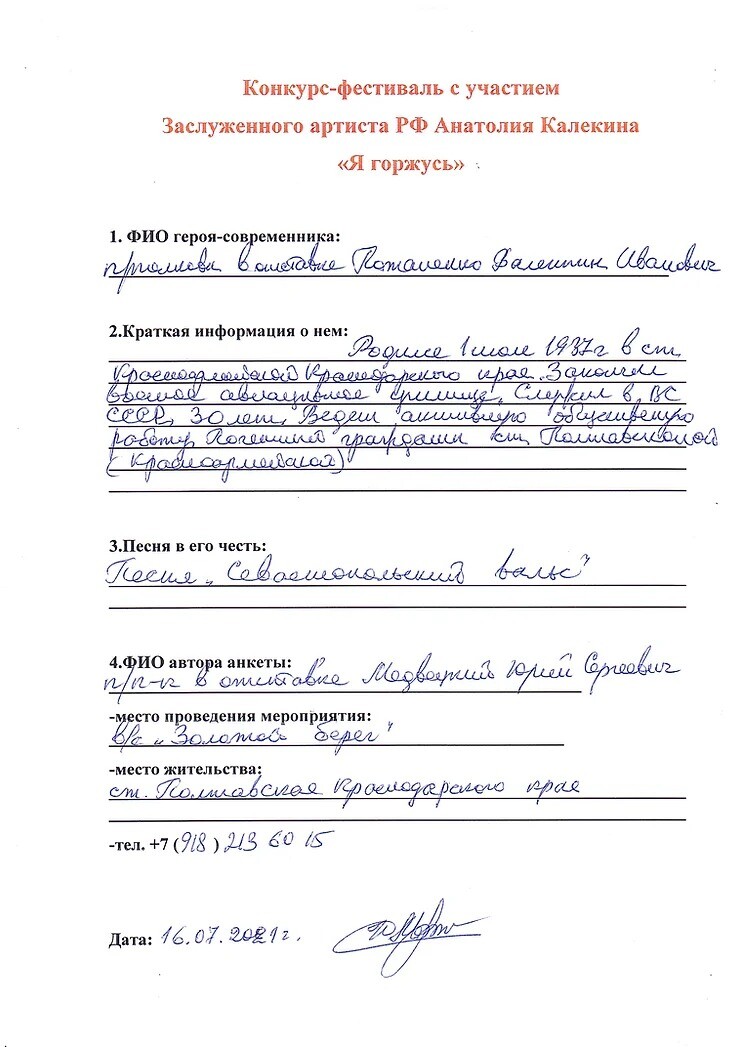 Конкурс-фестиваль с участием
Заслуженного артиста РФ Анатолия Калекина
«Я горжусь»
1. ФИО героя-современника:
в отставке Потапенко Валентин Иванович
2.Краткая информация о нем:
Родился 1 июля 1937г в ст.
Красноармейской Краснодарского края. Закончил
военное авиационное училище. Служил в ВС
СССР 30 лет. Ведет активную общественную
работу. Почетный гражданин ст. Полтавской
(Красноармейской)
3.Песня в его честь:
Песня „Севастопольский вальс"
4.ФИО автора анкеты:
п/п-к в отставке Медвецкий Юрий Сергеевич
-место проведения мероприятия:
„Золотой берег"
-место жительства:
ст. Полтавская Краснодарского края
-тел. +7 (918) 213 60 15
Дата: 16.07.2021г.